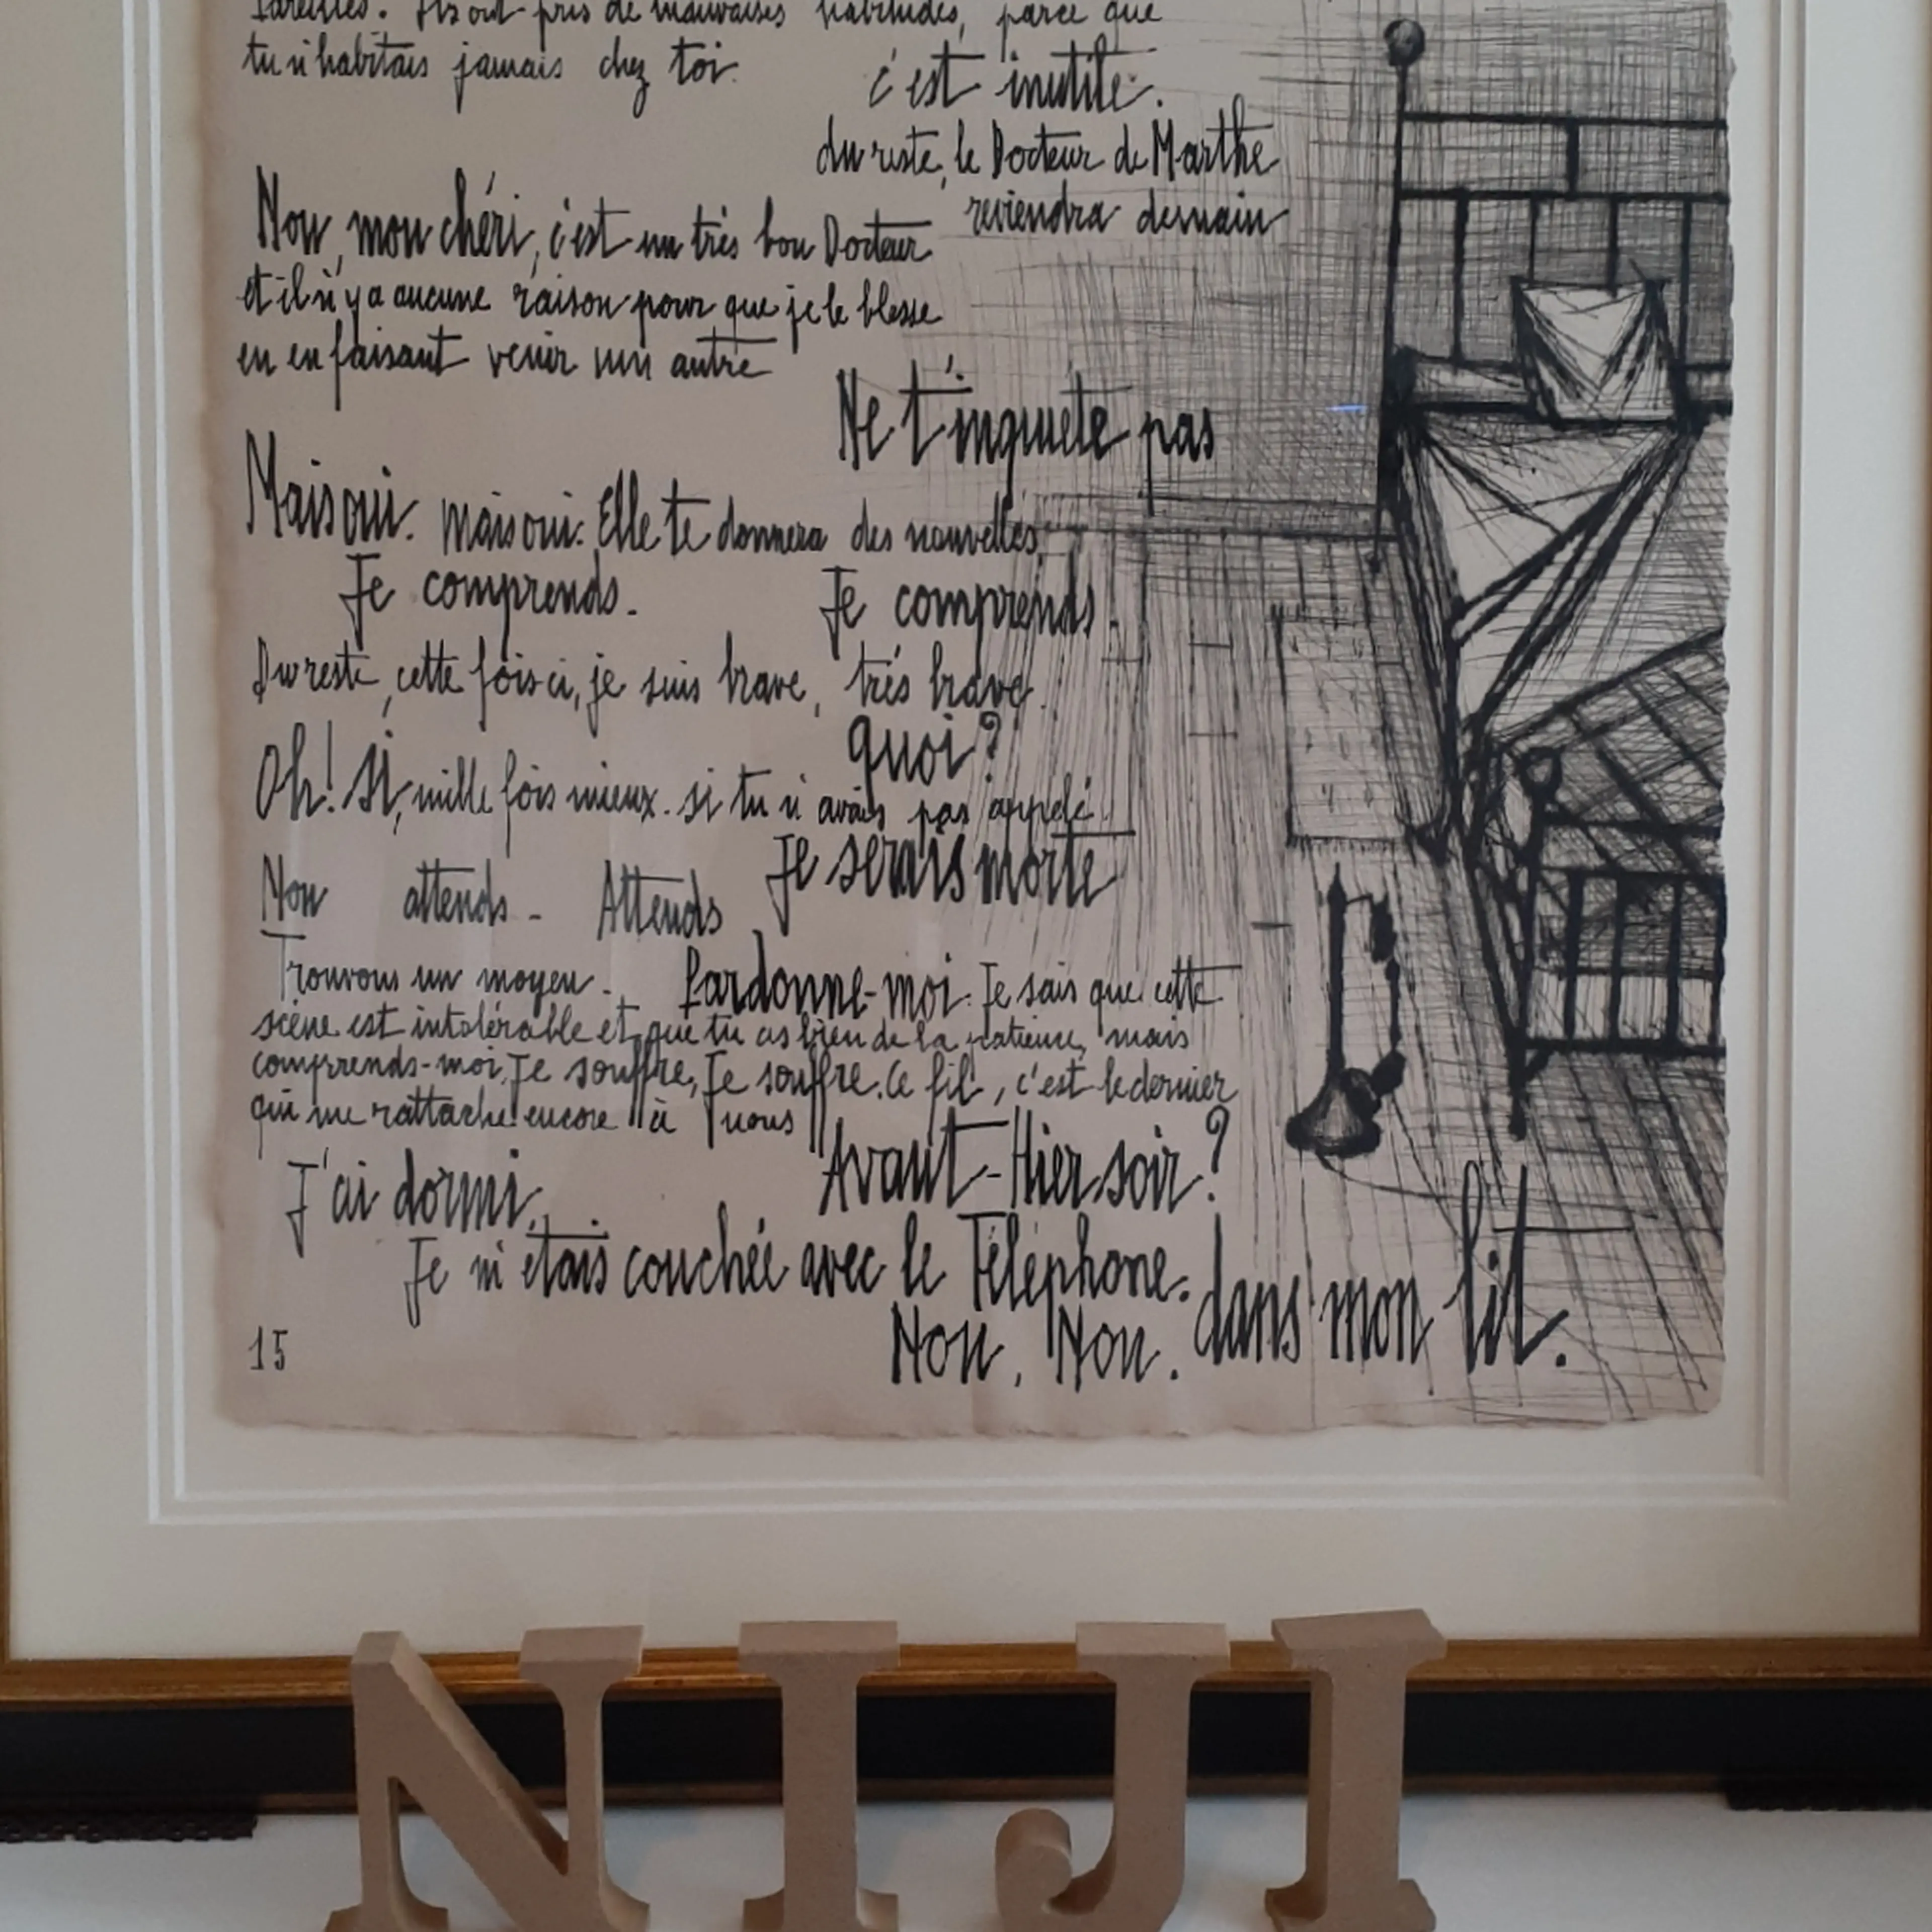 pareilles. Ils ont pris de mauvaises habitudes, parce que
tu n'habitais jamais chez toi.
c'est inutile.
du reste, le Docteur de Marthe
reviendra demain
Non, mon chéri, c'est un très bon Docteur
et il n'y a aucune raison pour que je le blesse
en en faisant venir un autre
Ne t'inquiète pas
Mais oui. mais oui. Elle te donnera des nouvelles.
Je comprends. Je comprends.
Du reste, cette fois ci, je suis brave, très brave.
Quoi?
Oh! si, mille fois mieux. si tu n'avais pas appelé
Je serais morte
Non attends. Attends
Trouvons un moyen. Pardonne-moi. Je sais que cette
scène est intolérable et que tu as bien de la patience, mais
comprends-moi, Je souffre, Je souffre. Ce fil, c'est le dernier
qui me rattache encore à nous
Avant-Hier soir?
J'ai dormi.
Je m'étais couchée avec le Téléphone.
Non, Non. dans mon lit.
15
NIJI